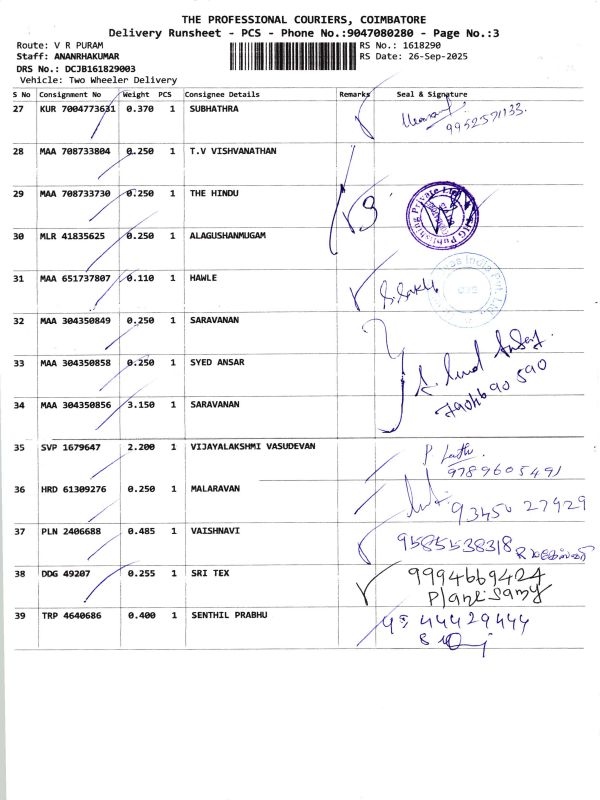 THE PROFESSIONAL COURIERS, COIMBATORE
Delivery Runsheet - PCS - Phone No.:9047080280 - Page No.:3
Route: V R PURAM
RS No.: 1618290
Staff: ANANRHAKUMAR
RS Date: 26-Sep-2025
DRS No.: DCJB161829003
Vehicle: Two Wheeler Delivery
S No Consignment No Weight PCS Consignee Details Remarks Seal & Signature
27 KUR 7004773631 0.370 1 SUBHATHRA
9952571133.
28 MAA 708733804 0.250 1 T.V VISHVANATHAN
29 MAA 708733730 0.250 1 THE HINDU
30 MLR 41835625 0.250 1 ALAGUSHANMUGAM
31 MAA 651737807 0.110 1 HAWLE
32 MAA 304350849 0.250 1 SARAVANAN
33 MAA 304350858 0.250 1 SYED ANSAR
34 MAA 304350856 3.150 1 SARAVANAN
35 SVP 1679647 2.200 1 VIJAYALAKSHMI VASUDEVAN
9789605491
36 HRD 61309276 0.250 1 MALARAVAN
93450 27929
37 PLN 2406688 0.485 1 VAISHNAVI
9585538318
38 DDG 49207 0.255 1 SRI TEX
9994669424
39 TRP 4640686 0.400 1 SENTHIL PRABHU